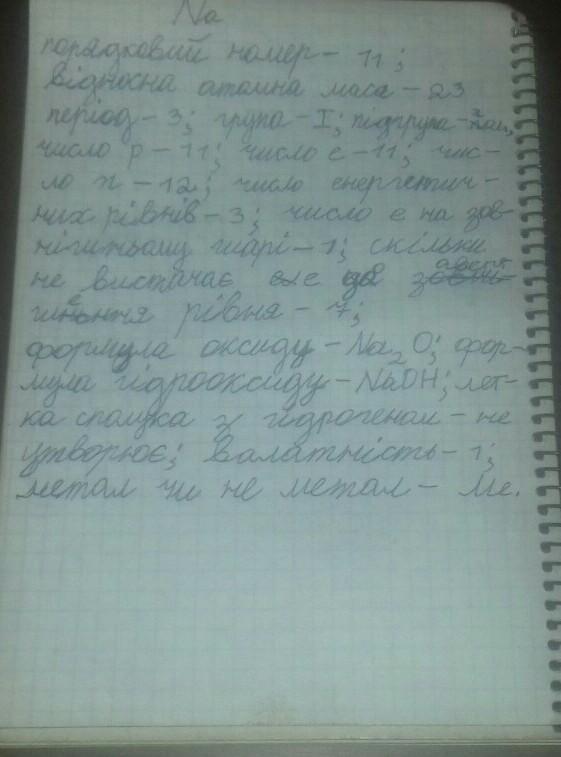 Na
порядковий номер - 11;
відносна атомна маса - 23
період - 3; група - I; підгрупа -
число p - 11; число e - 11; чис-
ло n - 12; число енергетич-
них рівнів - 3; число e на зов-
нішньому шарі - 1; скільки
не вистачає e до
рівня - 7;
формула оксиду - Na2O; фор-
мула гідрооксиду - NaOH; лет-
ка сполука з гідрогеном - не
утворює; валатність - 1;
метал чи не метал - Ме.